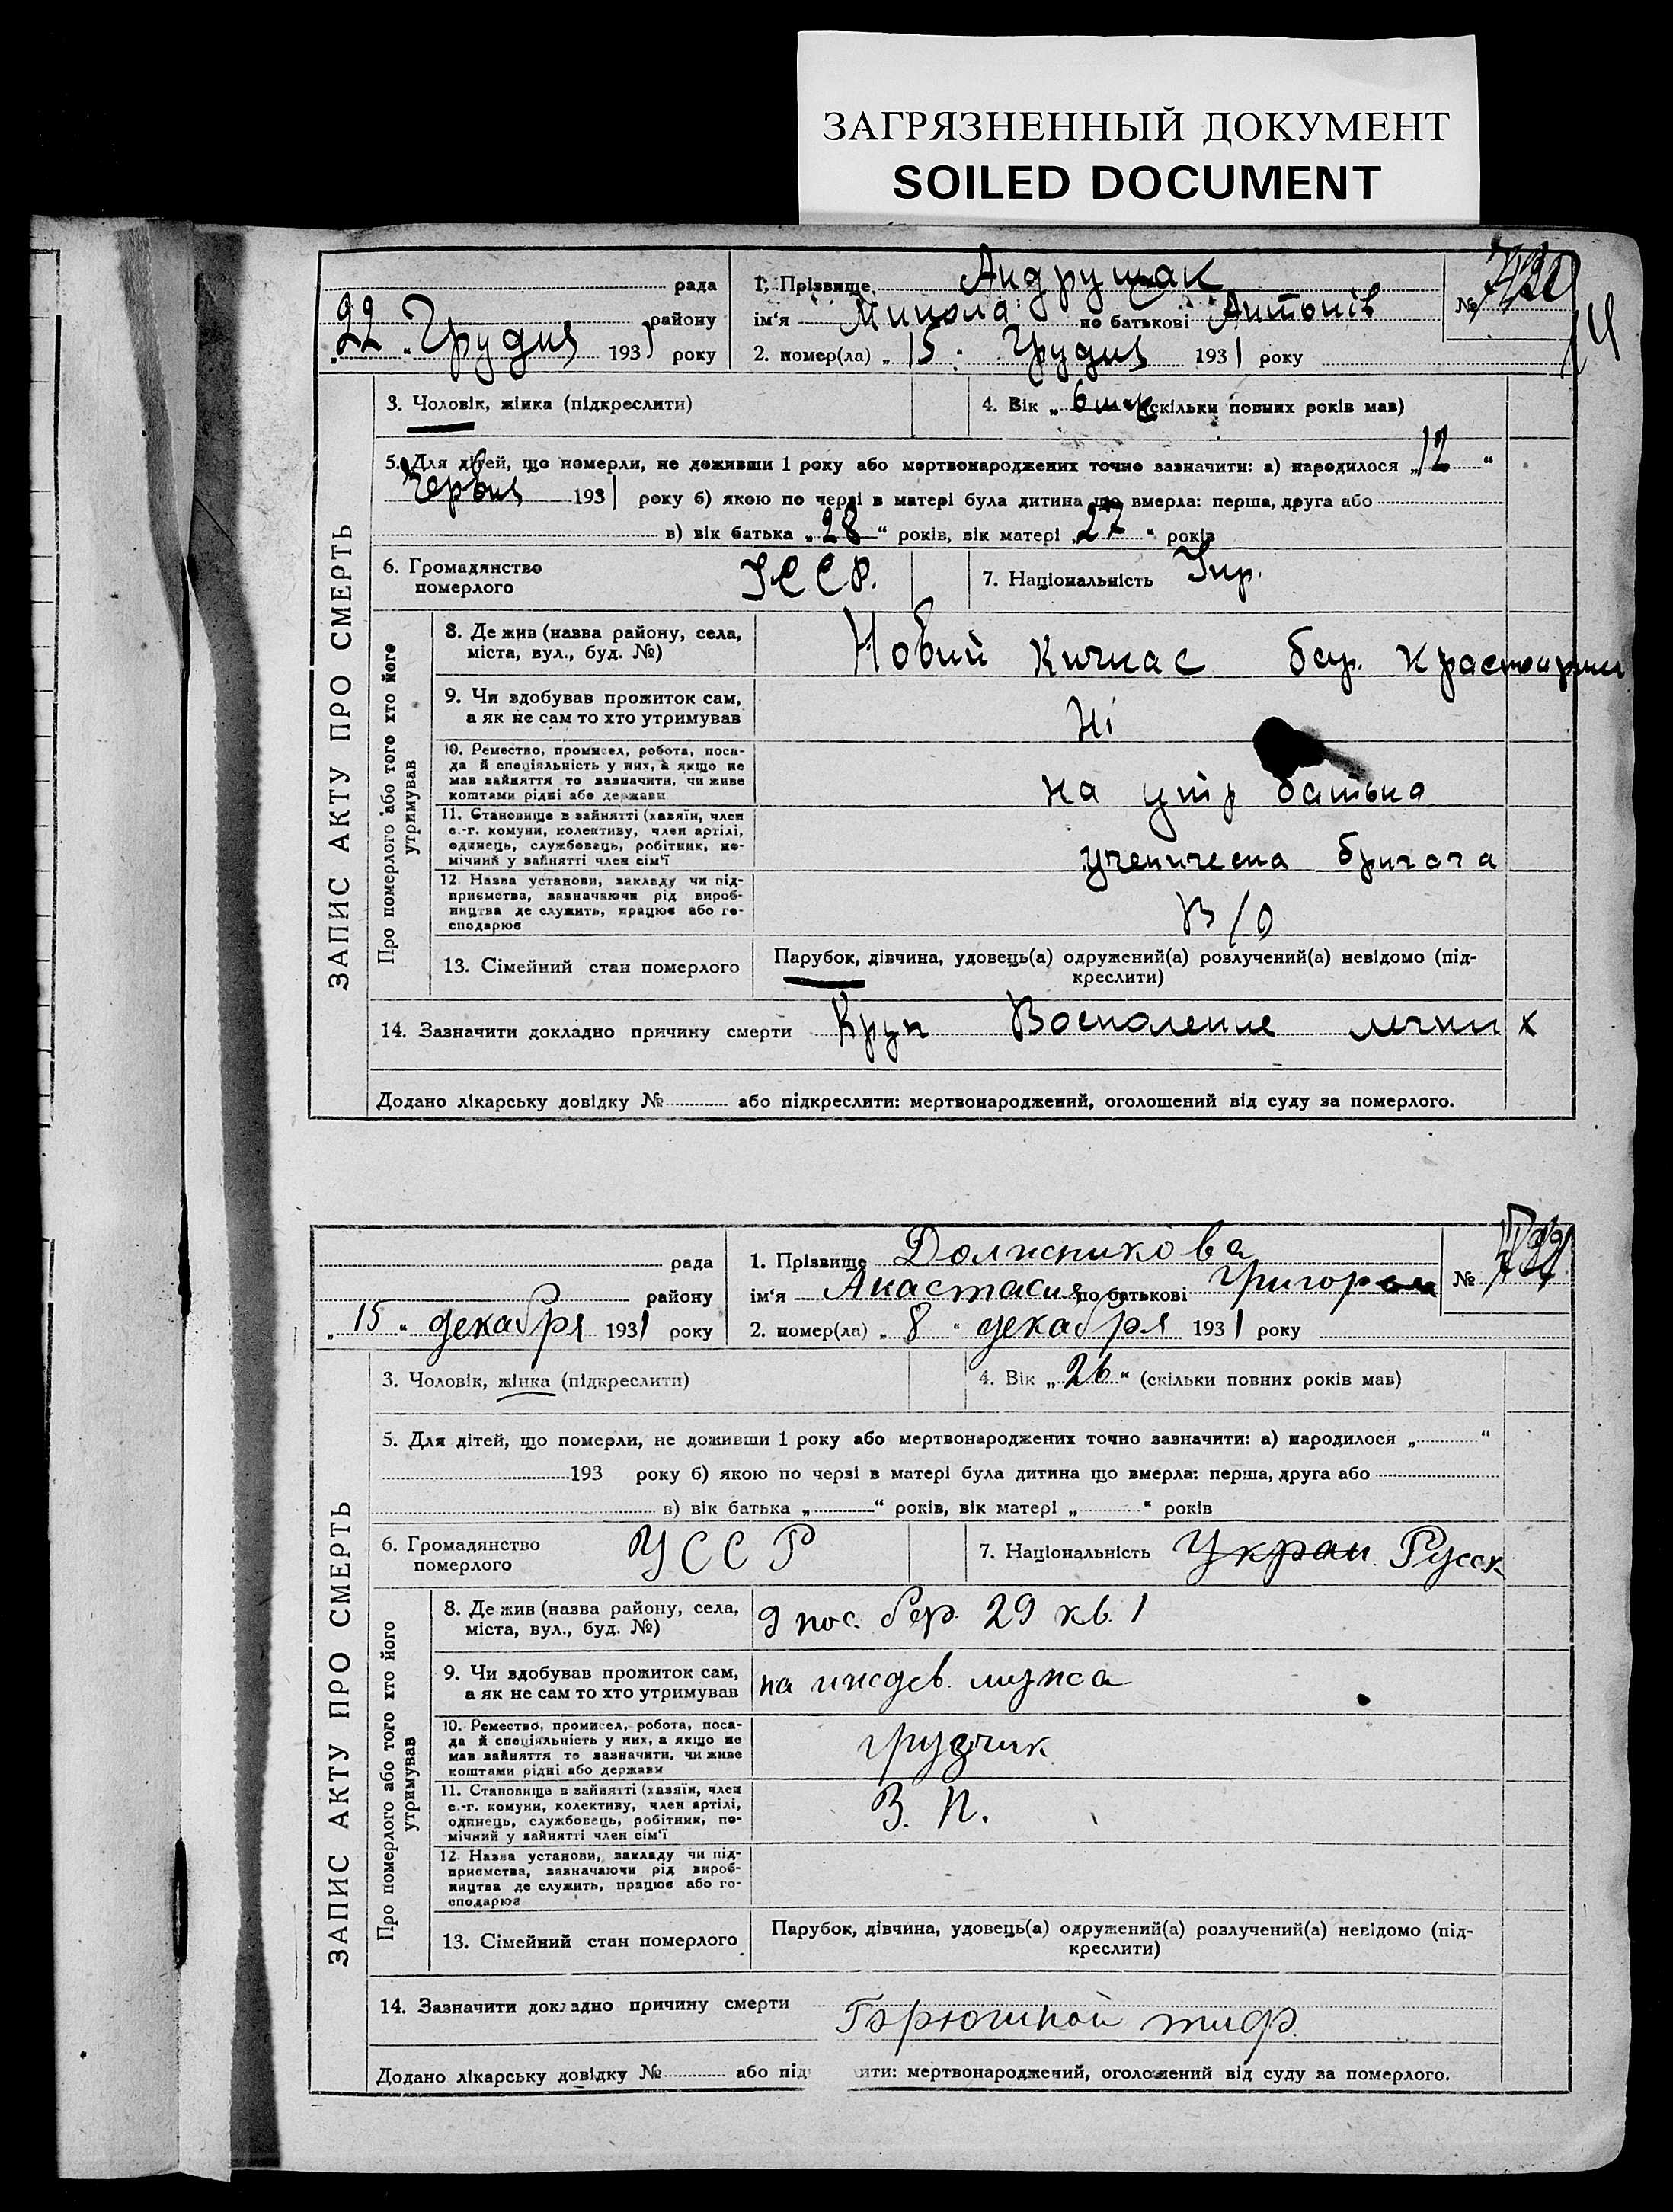 ЗАГРЯЗНЕННЫЙ ДОКУМЕНТ
SOILED DOCUMENT
ЗАПИС АКТУ ПРО СМЕРТЬ
рада
району
„22“ Грудня 1931 року
1. Прізвище Андрущак
ім'я Микола по батькові Антонів
2. помер(ла) „15“ Грудня 1931 року
№
3. Чоловік, жінка (підкреслити)
4. Вік „6 міс“ (скільки повних років мав)
5. Для дітей, що померли, не доживши 1 року або мертвонароджених точно зазначити: а) народилося „12“
Червня 1931 року б) якою по черзі в матері була дитина що вмерла: перша, друга або
в) вік батька „28“ років, вік матері „27“ років
6. Громадянство
померлого
УССР.
7. Національність Укр.
Про померлого або того хто його
утримував
8. Де жив (назва району, села,
міста, вул., буд. №)
Новий Кичкас бар.
9. Чи здобував прожиток сам,
а як не сам то хто утримував
Ні
10. Ремество, промисел, робота, поса-
да й спеціяльність у них, а якщо не
мав зайняття то зазначити, чи живе
коштами рідні або держави
на утр батька
11. Становище в зайнятті (хазяїн, член
с.-г. комуни, колективу, член артілі,
одинець, службовець, робітник, по-
мічний у зайнятті член сім'ї
12. Назва установи, закладу чи під-
приємства, зазначаючи рід вироб-
ництва де служить, працює або го-
сподарює
В/О
13. Сімейний стан померлого
Парубок, дівчина, удовець(а) одружений(а) розлучений(а) невідомо (під-
креслити)
14. Зазначити докладно причину смерти Круп Воспаление легких
Додано лікарську довідку № або підкреслити: мертвонароджений, оголошений від суду за померлого.
ЗАПИС АКТУ ПРО СМЕРТЬ
рада
району
„15“ декабря 1931 року
1. Прізвище Должникова
ім'я Анастасия по батькові Григор
2. помер(ла) „8“ декабря 1931 року
№
3. Чоловік, жінка (підкреслити)
4. Вік „26“ (скільки повних років мав)
5. Для дітей, що померли, не доживши 1 року або мертвонароджених точно зазначити: а) народилося „ “
193 року б) якою по черзі в матері була дитина що вмерла: перша, друга або
в) вік батька „ “ років, вік матері „ “ років
6. Громадянство
померлого
УССР
7. Національність Украи. Русск.
Про померлого або того хто його
утримував
8. Де жив (назва району, села,
міста, вул., буд. №)
9 пос. бар. 29 кв. 1
9. Чи здобував прожиток сам,
а як не сам то хто утримував
на иждев. мужа
10. Ремество, промисел, робота, поса-
да й спеціяльність у них, а якщо не
мав зайняття то зазначити, чи живе
коштами рідні або держави
грузчик
11. Становище в зайнятті (хазяїн, член
с.-г. комуни, колективу, член артілі,
одинець, службовець, робітник, по-
мічний у зайнятті член сім'ї
В. П.
12. Назва установи, закладу чи під-
приємства, зазначаючи рід вироб-
ництва де служить, працює або го-
сподарює
13. Сімейний стан померлого
Парубок, дівчина, удовець(а) одружений(а) розлучений(а) невідомо (під-
креслити)
14. Зазначити докладно причину смерти Брюшной тиф.
Додано лікарську довідку № або під ити: мертвонароджений, оголошений від суду за померлого.